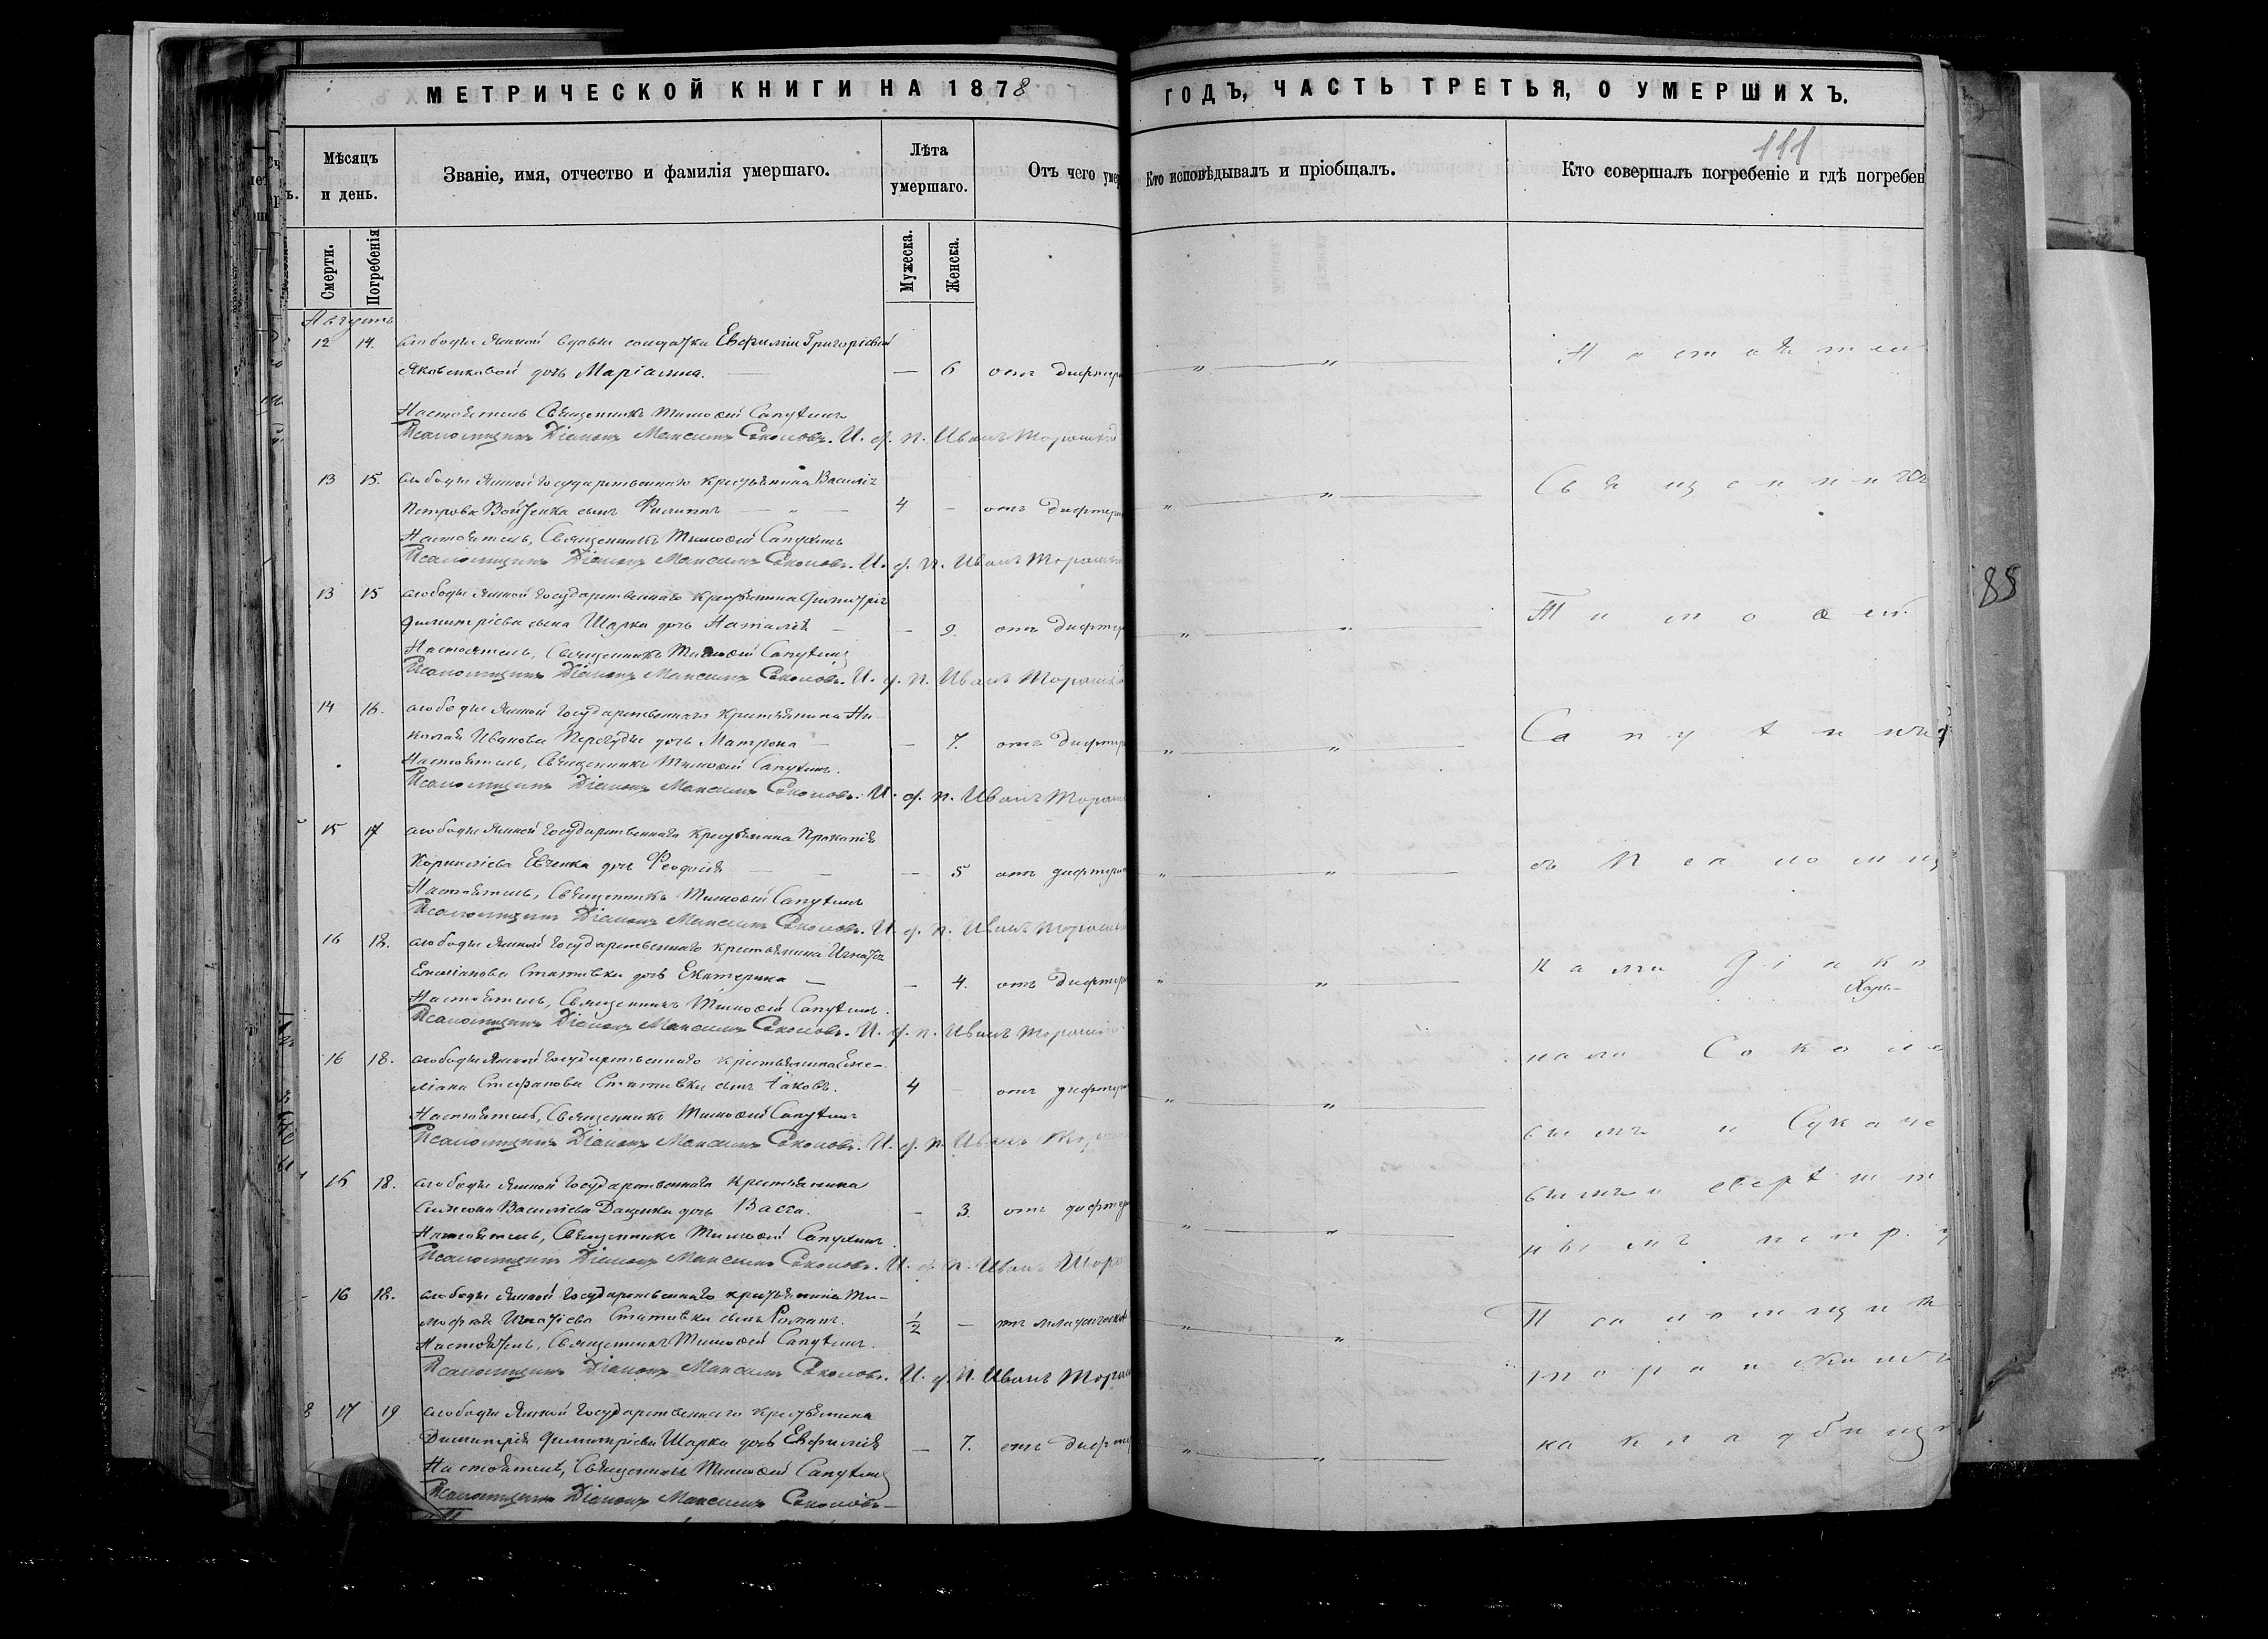 МЕТРИЧЕСКОЙ КНИГИ НА 1878
ГОДЪ, ЧАСТЬ ТРЕТЬЯ, О УМЕРШИХЪ.
111
Мѣсяцъ и день.
Званіе, имя, отчество и фамилія умершаго.
Лѣта умершаго.
Отъ чего умер
Кто исповѣдывалъ и пріобщалъ.
Кто совершалъ погребеніе и гдѣ погребен
Смерти.
Погребенія
Мужеска.
Женска.
Августъ
12 14. слободы Ямной вдовы солдатки Евфиміи Григоріевой
Яковенковой дочь Маріамна. — 6 отъ дифтери
Настоятель Священникъ Тимоѳей Сапухинъ
Псаломщикъ Діаконъ Максимъ Соколовъ. И. д. п. Иванъ
13 15. слободы Ямной государственнаго крестьянина Василія
Петрова сынъ Филиппъ 4 — отъ дифтери
Настоятель, Священникъ Тимоѳей Сапухинъ
Псаломщикъ Діаконъ Максимъ Соколовъ. И. д. п. Иванъ
13 15 слободы Ямной государственнаго крестьянина Димитрія
Димитріева сына Шарка дочь Наталія — 9. отъ дифтер
Настоятель, Священникъ Тимоѳей Сапухинъ
Псаломщикъ Діаконъ Максимъ Соколовъ. И. д. п. Иванъ
14 16. слободы Ямной государственнаго крестьянина Ни-
колая Иванова дочь Матрона — 7. отъ дифтер
Настоятель, Священникъ Тимоѳей Сапухинъ.
Псаломщикъ Діаконъ Максимъ Соколовъ. И. д. п. Иванъ
15 17 слободы Ямной государственнаго крестьянина Прокопія
Корнилієва Евченка дочь Феодосія — 5 отъ дифтери
Настоятель, Священникъ Тимоѳей Сапухинъ
Псаломщикъ Діаконъ Максимъ Соколовъ. И. д. п. Иванъ
16 18. слободы Ямной государственнаго крестьянина Игнатія
Емеліанова Стативки дочь Екатерина — 4. отъ дифтери
Настоятель, Священникъ Тимоѳей Сапухинъ.
Псаломщикъ Діаконъ Максимъ Соколовъ. И. д. п. Иванъ
16 18. слободы Ямной государственнаго крестьянина Еме-
ліана Стефанова Стативки сынъ Іаковъ. 4 — отъ дифтери
Настоятель, Священникъ Тимоѳей Сапухинъ
Псаломщикъ Діаконъ Максимъ Соколовъ. И. д. п. Иванъ
16 18. слободы Ямной государственнаго крестьянина
Симеона Василіева Даценка дочь Васса. — 3. отъ дифтер
Настоятель, Священникъ Тимоѳей Сапухинъ.
Псаломщикъ Діаконъ Максимъ Соколовъ. И. д. п. Иванъ
16 18. слободы Ямной государственнаго крестьянина Ти-
мофея Игнатіева Стативки сынъ Романъ. ½ — отъ младенческой
Настоятель, Священникъ Тимоѳей Сапухинъ.
Псаломщикъ Діаконъ Максимъ Соколовъ. И. д. п. Иванъ
8 17 19 слободы Ямной государственнаго крестьянина
Димитрія Димитріева Шарка дочь Евфимія — 7. отъ дифте
Настоятель, Священникъ Тимоѳей Сапухинъ
Псаломщикъ Діаконъ Максимъ Соколовъ
Настоятел
Священникъ
Тимоѳей
Сапухинъ
съ Псаломщи
ками Діако
номъ Соколо
вымъ и Сукаче
вымъ и сверхшт
Псаломщик
на кладбищ
85